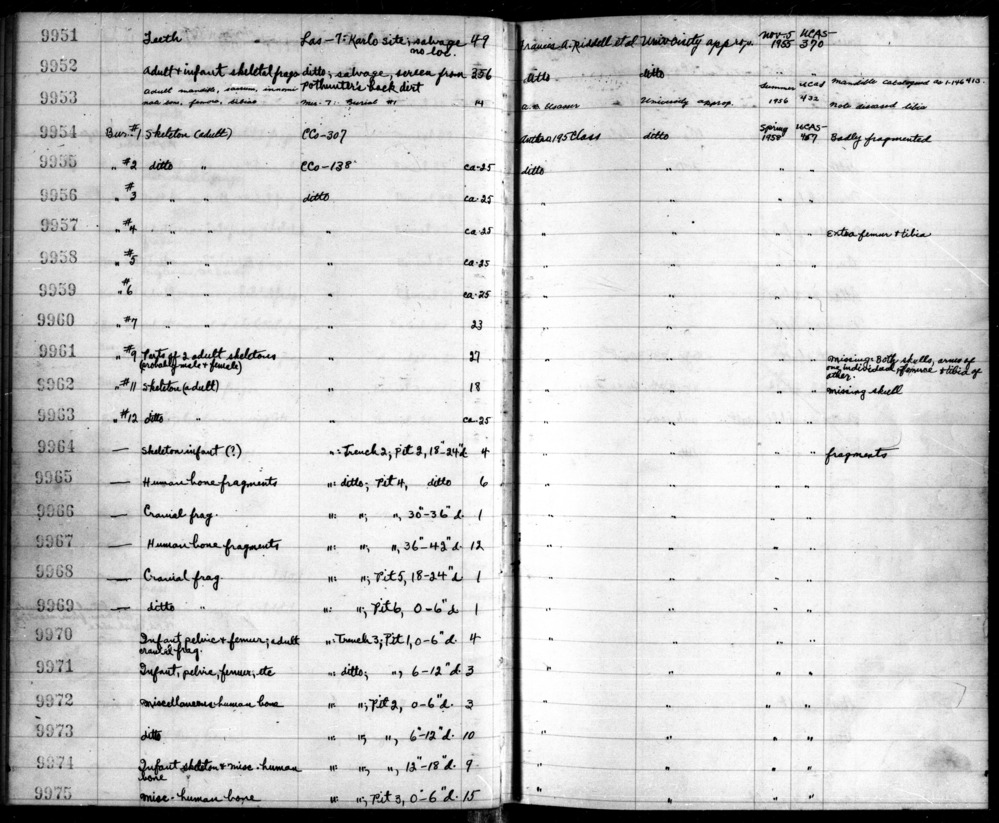 9951 Teeth " Las-7: Karlo site; salvage no loc. 49 Francis A. Riddell et al University approp. Nov-5 1955 UCAS-370
9952 Adult + infant skeletal frags ditto; salvage, screen from Pothunter's back dirt 356 ditto ditto " "
9953 adult mandible, sacrum, femora, tibiae Mer-7: Burial #1 14 University approp. Summer 1956 UCAS 432 Mandible catalogued as Note diseased tibia
9954 Bur. #1 Skeleton (adult) CCo-307 Anthro 195 Class ditto Spring 1958 UCAS- Badly fragmented
9955 " #2 ditto " CCo-138 ca-25 ditto " " "
9956 " #3 " " ditto ca-25 " " " "
9957 " #4 " " " ca-25 " " " " Extra femur + tibia
9958 " #5 " " " ca-25 " " " "
9959 " #6 " " " ca-25 " " " "
9960 " #7 " " " 23 " " " "
9961 " #9 Parts of 2 adult skeletons (probably male + female) " 27 " " " " Missing: Both skulls, arms of one individual, femur + tibia of other.
9962 " #11 Skeleton (adult) " 18 " " " " Missing skull
9963 " #12 ditto " " ca-25 " " " "
9964 — Skeleton infant (?) ": Trench 2; Pit 2, 18"-24"d 4 " " " " fragments
9965 — Human bone fragments ": ditto; Pit 4, ditto 6 " " " "
9966 — Cranial frag. ": "; ", 30"-36"d. 1 " " " "
9967 — Human bone fragments ": "; ", 36"-42"d. 12 " " " "
9968 — Cranial frag. ": "; Pit 5, 18-24"d 1 " " " "
9969 — ditto " ": "; Pit 6, 0-6"d 1 " " " "
9970 Infant pelvic + femur; adult cranial frag. ": Trench 3; Pit 1, 0-6"d. 4 " " " "
9971 Infant, pelvic, femur, etc ": ditto; ", 6-12"d. 3 " " " "
9972 Miscellaneous human bone ": "; Pit 2, 0-6"d. 3 " " " "
9973 ditto ": "; ", 6"-12"d. 10 " " " "
9974 Infant skeleton + misc. human bone ": "; ", 12"-18"d. 9 " " " "
9975 misc. human bone ": "; Pit 3, 0-6"d. 15 " " " "